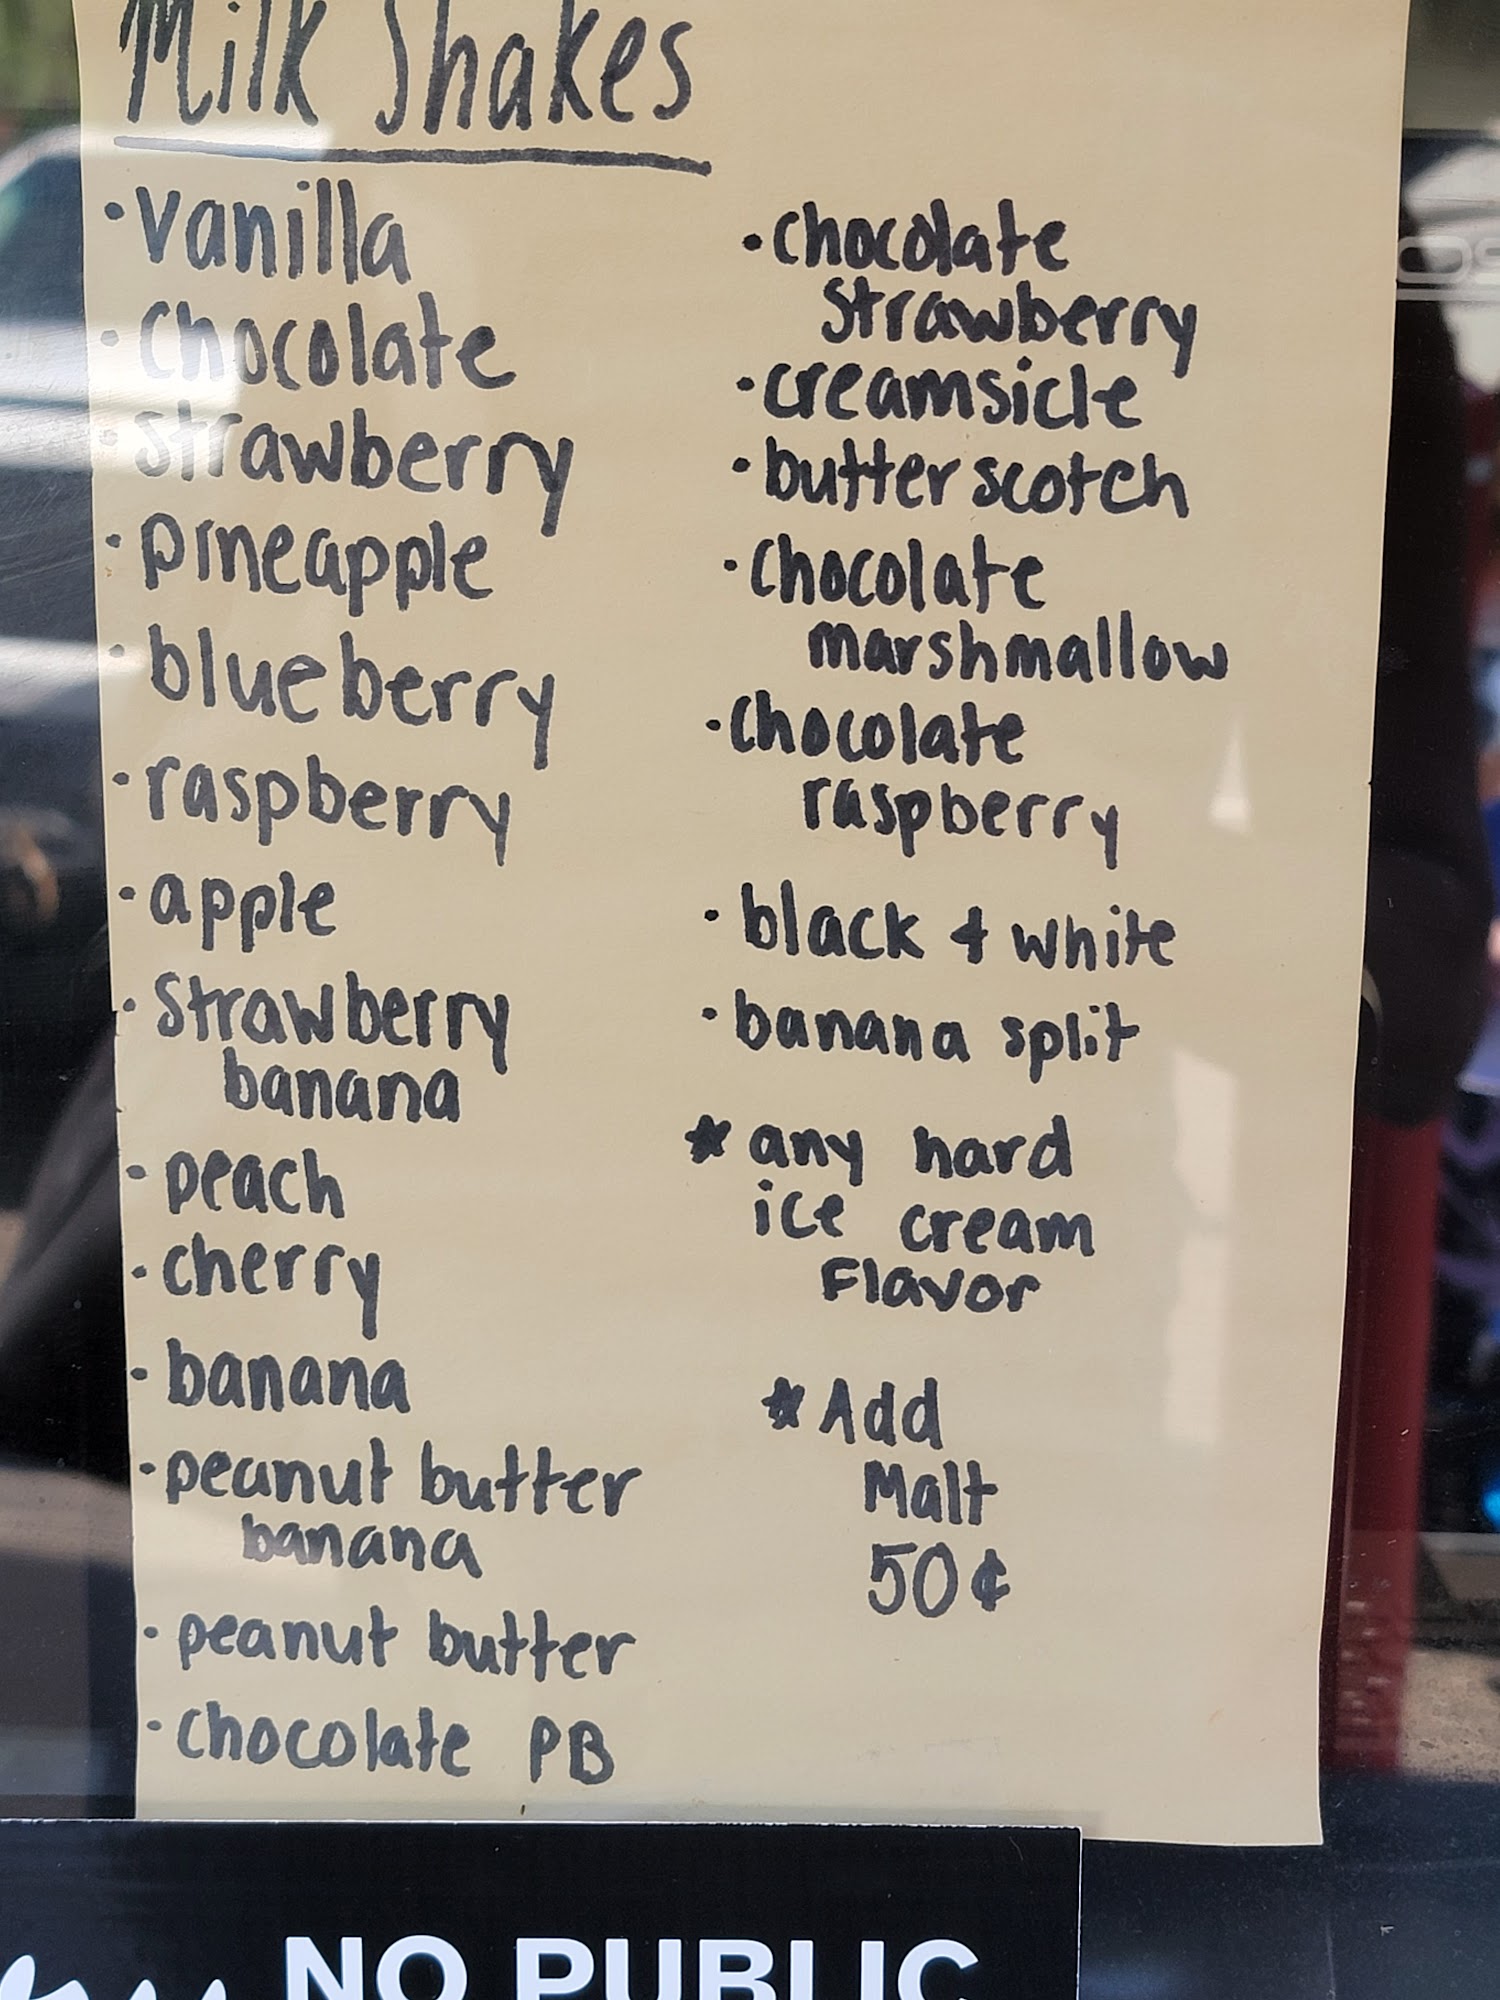 Milk Shakes
• vanilla
• chocolate
• strawberry
• pineapple
• blueberry
• raspberry
• apple
• strawberry
banana
• peach
• cherry
• banana
• peanut butter
banana
• peanut butter
• chocolate PB
• chocolate
strawberry
• creamsicle
• butterscotch
• chocolate
marshmallow
• chocolate
raspberry
• black + white
• banana split
* any hard
ice cream
Flavor
* Add
Malt
50¢
NO PUBLIC